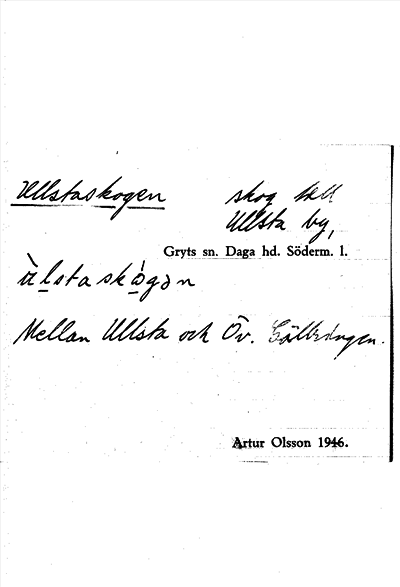 Ullstaskogen skog till
Ullsta by,
Gryts sn. Daga hd. Söderm. l.
Mellan Ullsta och Öv.
Artur Olsson 1946.